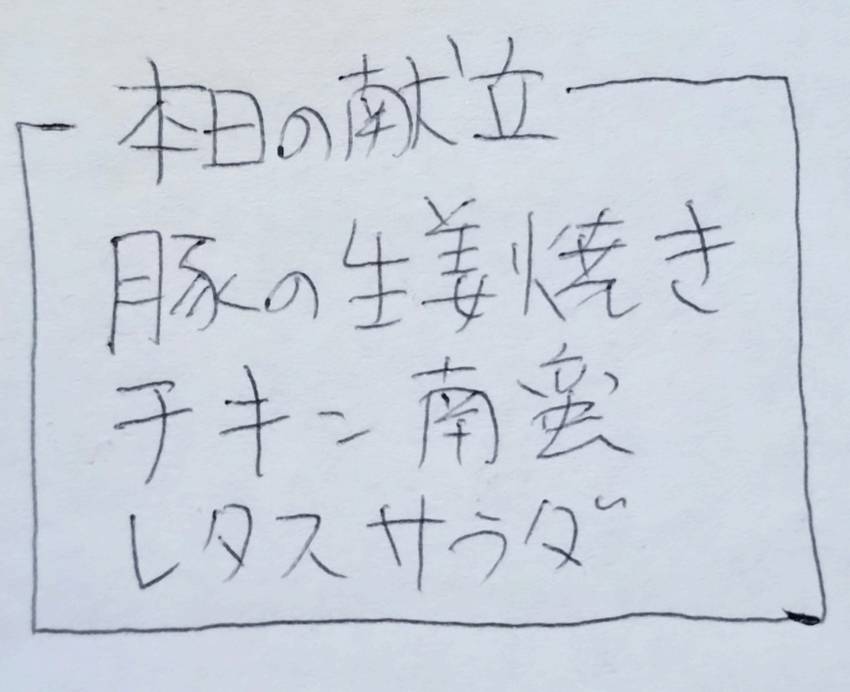 本日の献立
豚の生姜焼き
チキン南蛮
レタスサラダ